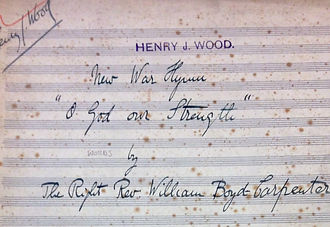 Henry J Wood
HENRY J. WOOD.
New War Hymn
"O God our Strength"
WORDS
by
The Right Rev. William Boyd Carpenter